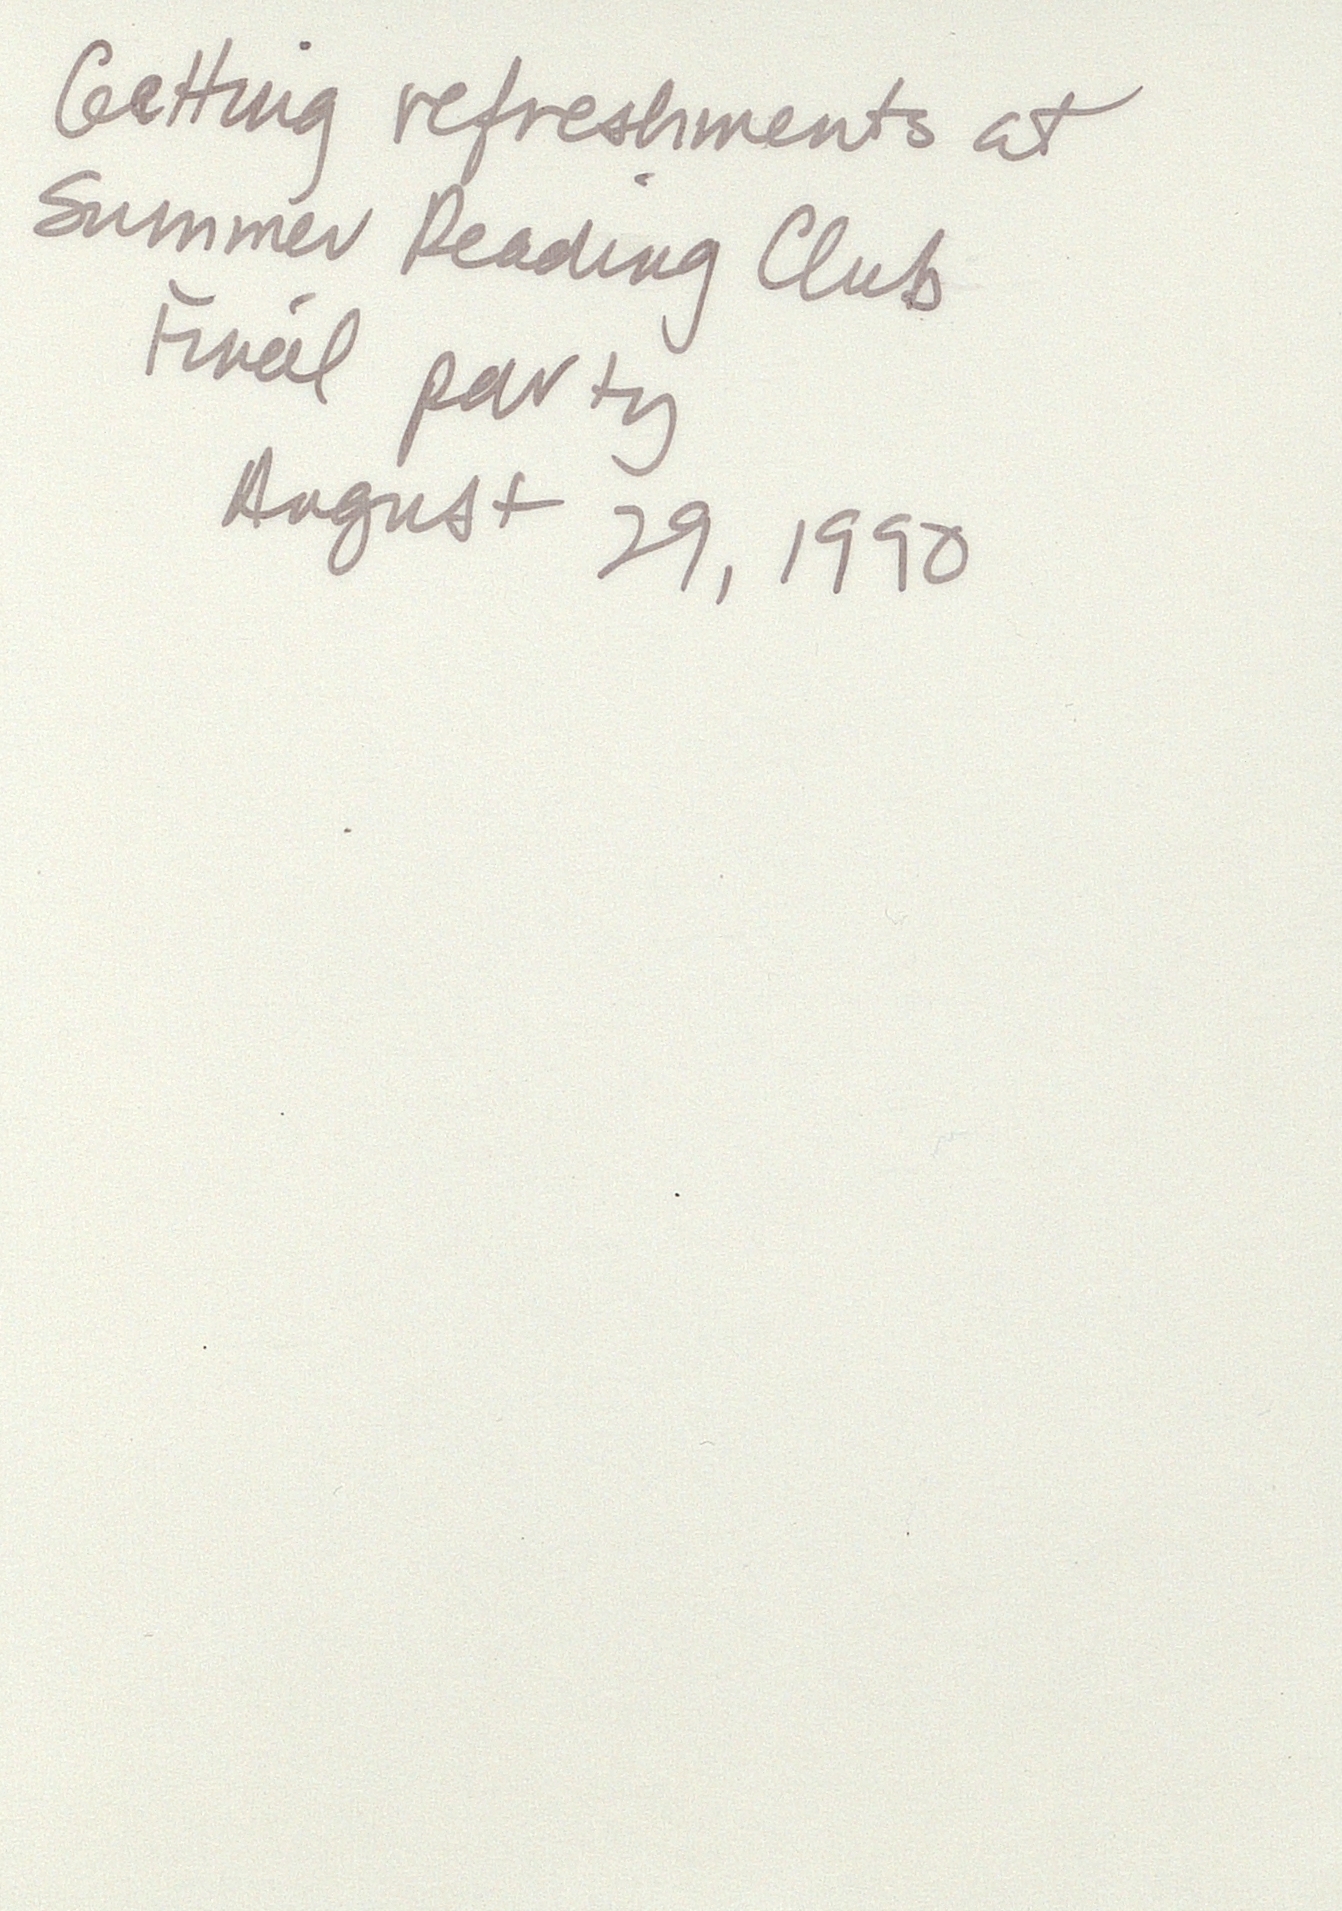 Getting refreshments at
Summer Reading Club
Final party
August 29, 1990